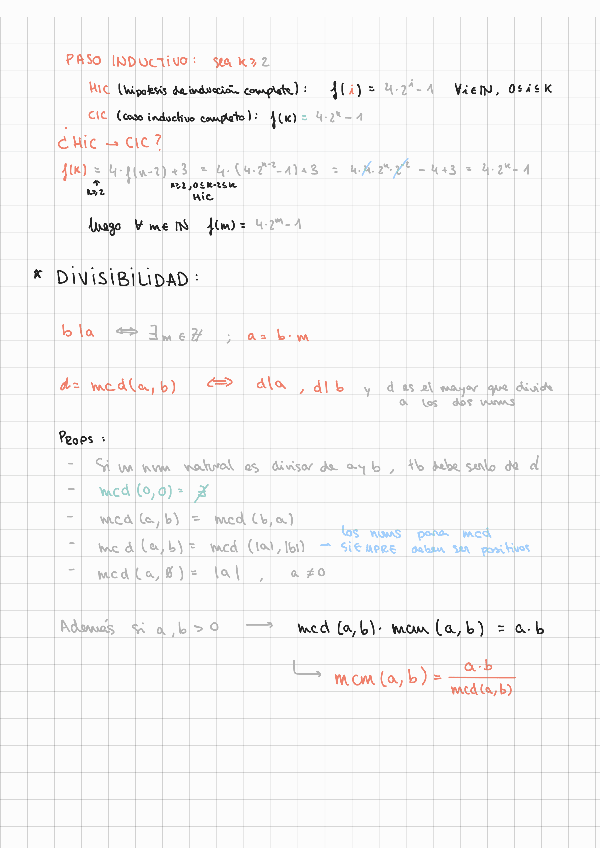 PASO INDUCTIVO: sea k ≥ 2
HIC (hipotesis de inducción completa): f(i) = 4·2^i − 1 ∀i∈ℕ, 0≤i≤k
CIC (caso inductivo completo): f(k) = 4·2^k − 1
¿HIC → CIC?
f(k) = 4·f(k−2) + 3 = 4·(4·2^{k−2} − 1) + 3 = 4·4·2^k·2^{−2} − 4 + 3 = 4·2^k − 1
↑
k≥2
k≥2, 0≤k−2≤k
HIC
luego ∀ m∈ℕ f(m) = 4·2^m − 1
* DIVISIBILIDAD:
b|a ⟺ ∃m∈ℤ ; a = b·m
d = mcd(a,b) ⟺ d|a, d|b y d es el mayor que divide
a los dos nums
PROPS:
- Si un num natural es divisor de a y b, tb debe serlo de d
- mcd(0,0) = ∄
- mcd(a,b) = mcd(b,a)
- mcd(a,b) = mcd(|a|,|b|) → los nums para mcd
SIEMPRE deben ser positivos
- mcd(a,0) = |a|, a ≠ 0
Además si a,b > 0 → mcd(a,b)·mcm(a,b) = a·b
↳ mcm(a,b) = a·b / mcd(a,b)